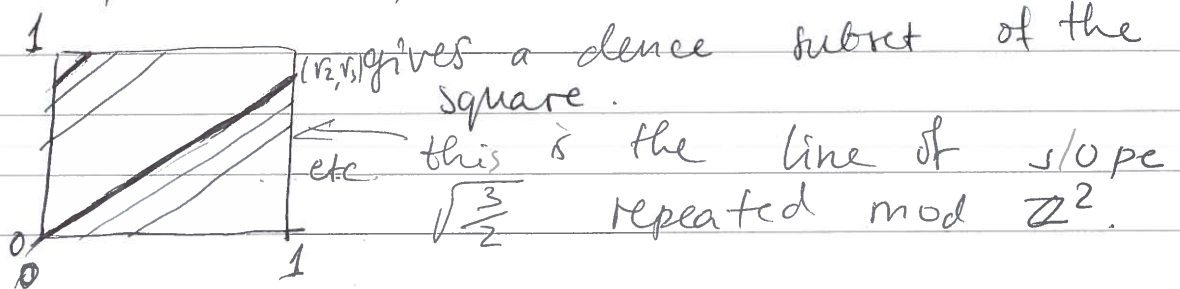 1
(√2,√3) gives a dence subset of the
square.
etc. this is the line of slope
√(3/2) repeated mod ℤ².
0
0 1